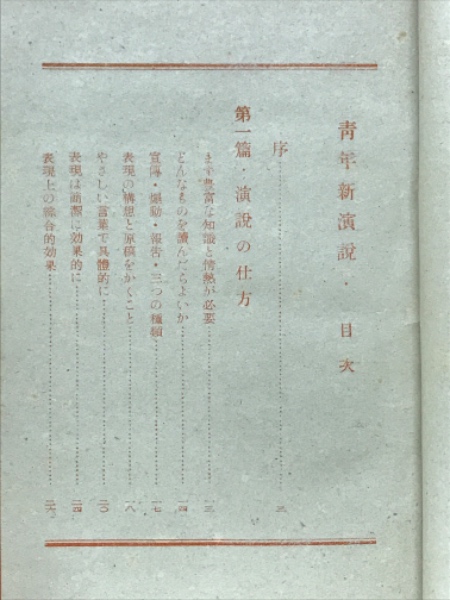 青年新演説・目次
序……三
第一篇・演説の仕方
まず豊富な知識と情熱が必要……一三
どんなものを讀んだらよいか……一四
宣傳・煽動・報告・三つの種類……一七
表現の構想と原稿をかくこと……一八
やさしい言葉で具體的に……二〇
表現は簡潔に効果的に……二四
表現上の綜合的効果……二六